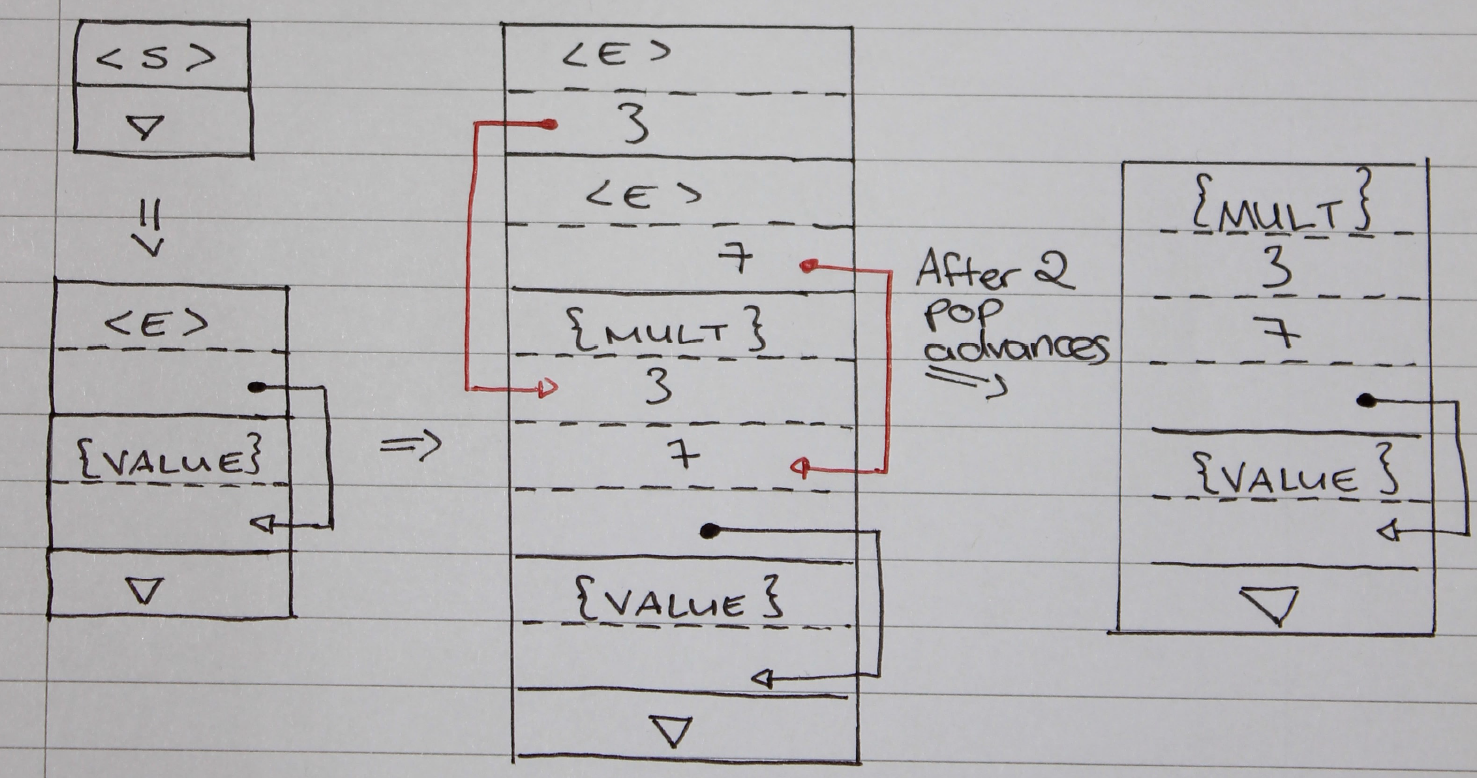 <S>
▽
<E>
{VALUE}
▽
<E>
3
<E>
7
{MULT}
3
7
{VALUE}
▽
After 2
pop
advances
{MULT}
3
7
{VALUE}
▽